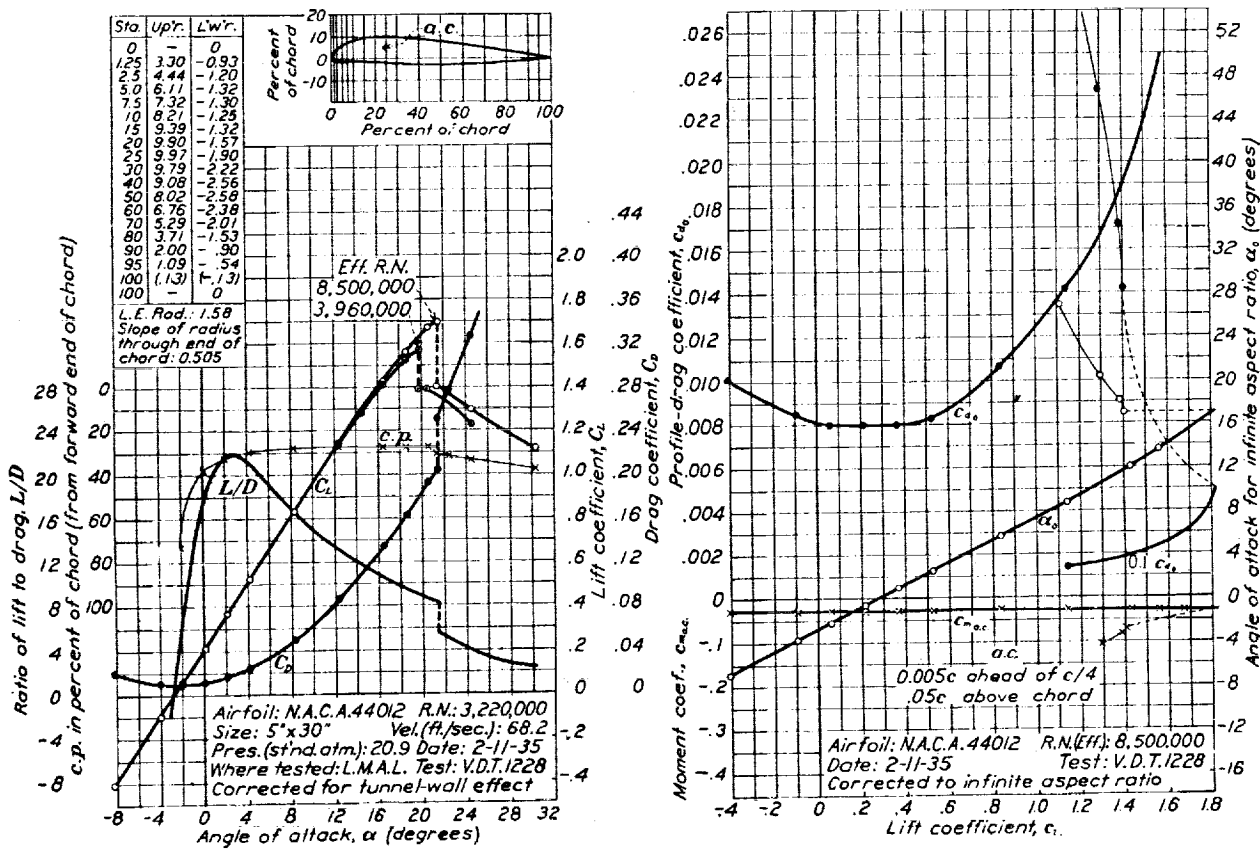 Sta. Up'r. L'w'r.
0 – 0
1.25 3.30 -0.93
2.5 4.44 -1.20
5.0 6.11 -1.32
7.5 7.32 -1.30
10 8.21 -1.25
15 9.39 -1.32
20 9.90 -1.57
25 9.97 -1.90
30 9.79 -2.22
40 9.08 -2.56
50 8.02 -2.58
60 6.76 -2.38
70 5.29 -2.01
80 3.71 -1.53
90 2.00 - .90
95 1.09 - .54
100 (.13) (-.13)
100 – 0
L.E. Rad.: 1.58
Slope of radius
through end of
chord: 0.505
Percent
of chord
20
10
0
-10
a.c.
0 20 40 60 80 100
Percent of chord
Eff. R.N.
8,500,000
3,960,000
Ratio of lift to drag, L/D
28
24
20
16
12
8
4
0
-4
-8
c.p. in percent of chord (from forward end of chord)
0
20
40
60
80
100
c.p.
L/D
C_L
C_D
Lift coefficient, C_L
2.0
1.8
1.6
1.4
1.2
1.0
.8
.6
.4
.2
0
-.2
-.4
Drag coefficient, C_D
.44
.40
.36
.32
.28
.24
.20
.16
.12
.08
.04
0
Airfoil: N.A.C.A. 44012 R.N.: 3,220,000
Size: 5"x30" Vel. (ft./sec.): 68.2
Pres. (st'nd. atm.): 20.9 Date: 2-11-35
Where tested: L.M.A.L. Test: V.D.T. 1228
Corrected for tunnel-wall effect
-8 -4 0 4 8 12 16 20 24 28 32
Angle of attack, α (degrees)
Profile-drag coefficient, c_d₀
.026
.024
.022
.020
.018
.016
.014
.012
.010
.008
.006
.004
.002
0
Moment coef., c_m a.c.
-.1
-.2
-.3
-.4
-.5
c_d₀
α₀
0.1 c_d₀
c_m a.c.
a.c.
0.005c ahead of c/4
.05c above chord
Angle of attack for infinite aspect ratio, α₀ (degrees)
52
48
44
40
36
32
28
24
20
16
12
8
4
0
-4
-8
-12
-16
Airfoil: N.A.C.A. 44012 R.N. (Eff.): 8,500,000
Date: 2-11-35 Test: V.D.T. 1228
Corrected to infinite aspect ratio
-.4 -.2 0 .2 .4 .6 .8 1.0 1.2 1.4 1.6 1.8
Lift coefficient, c_l.